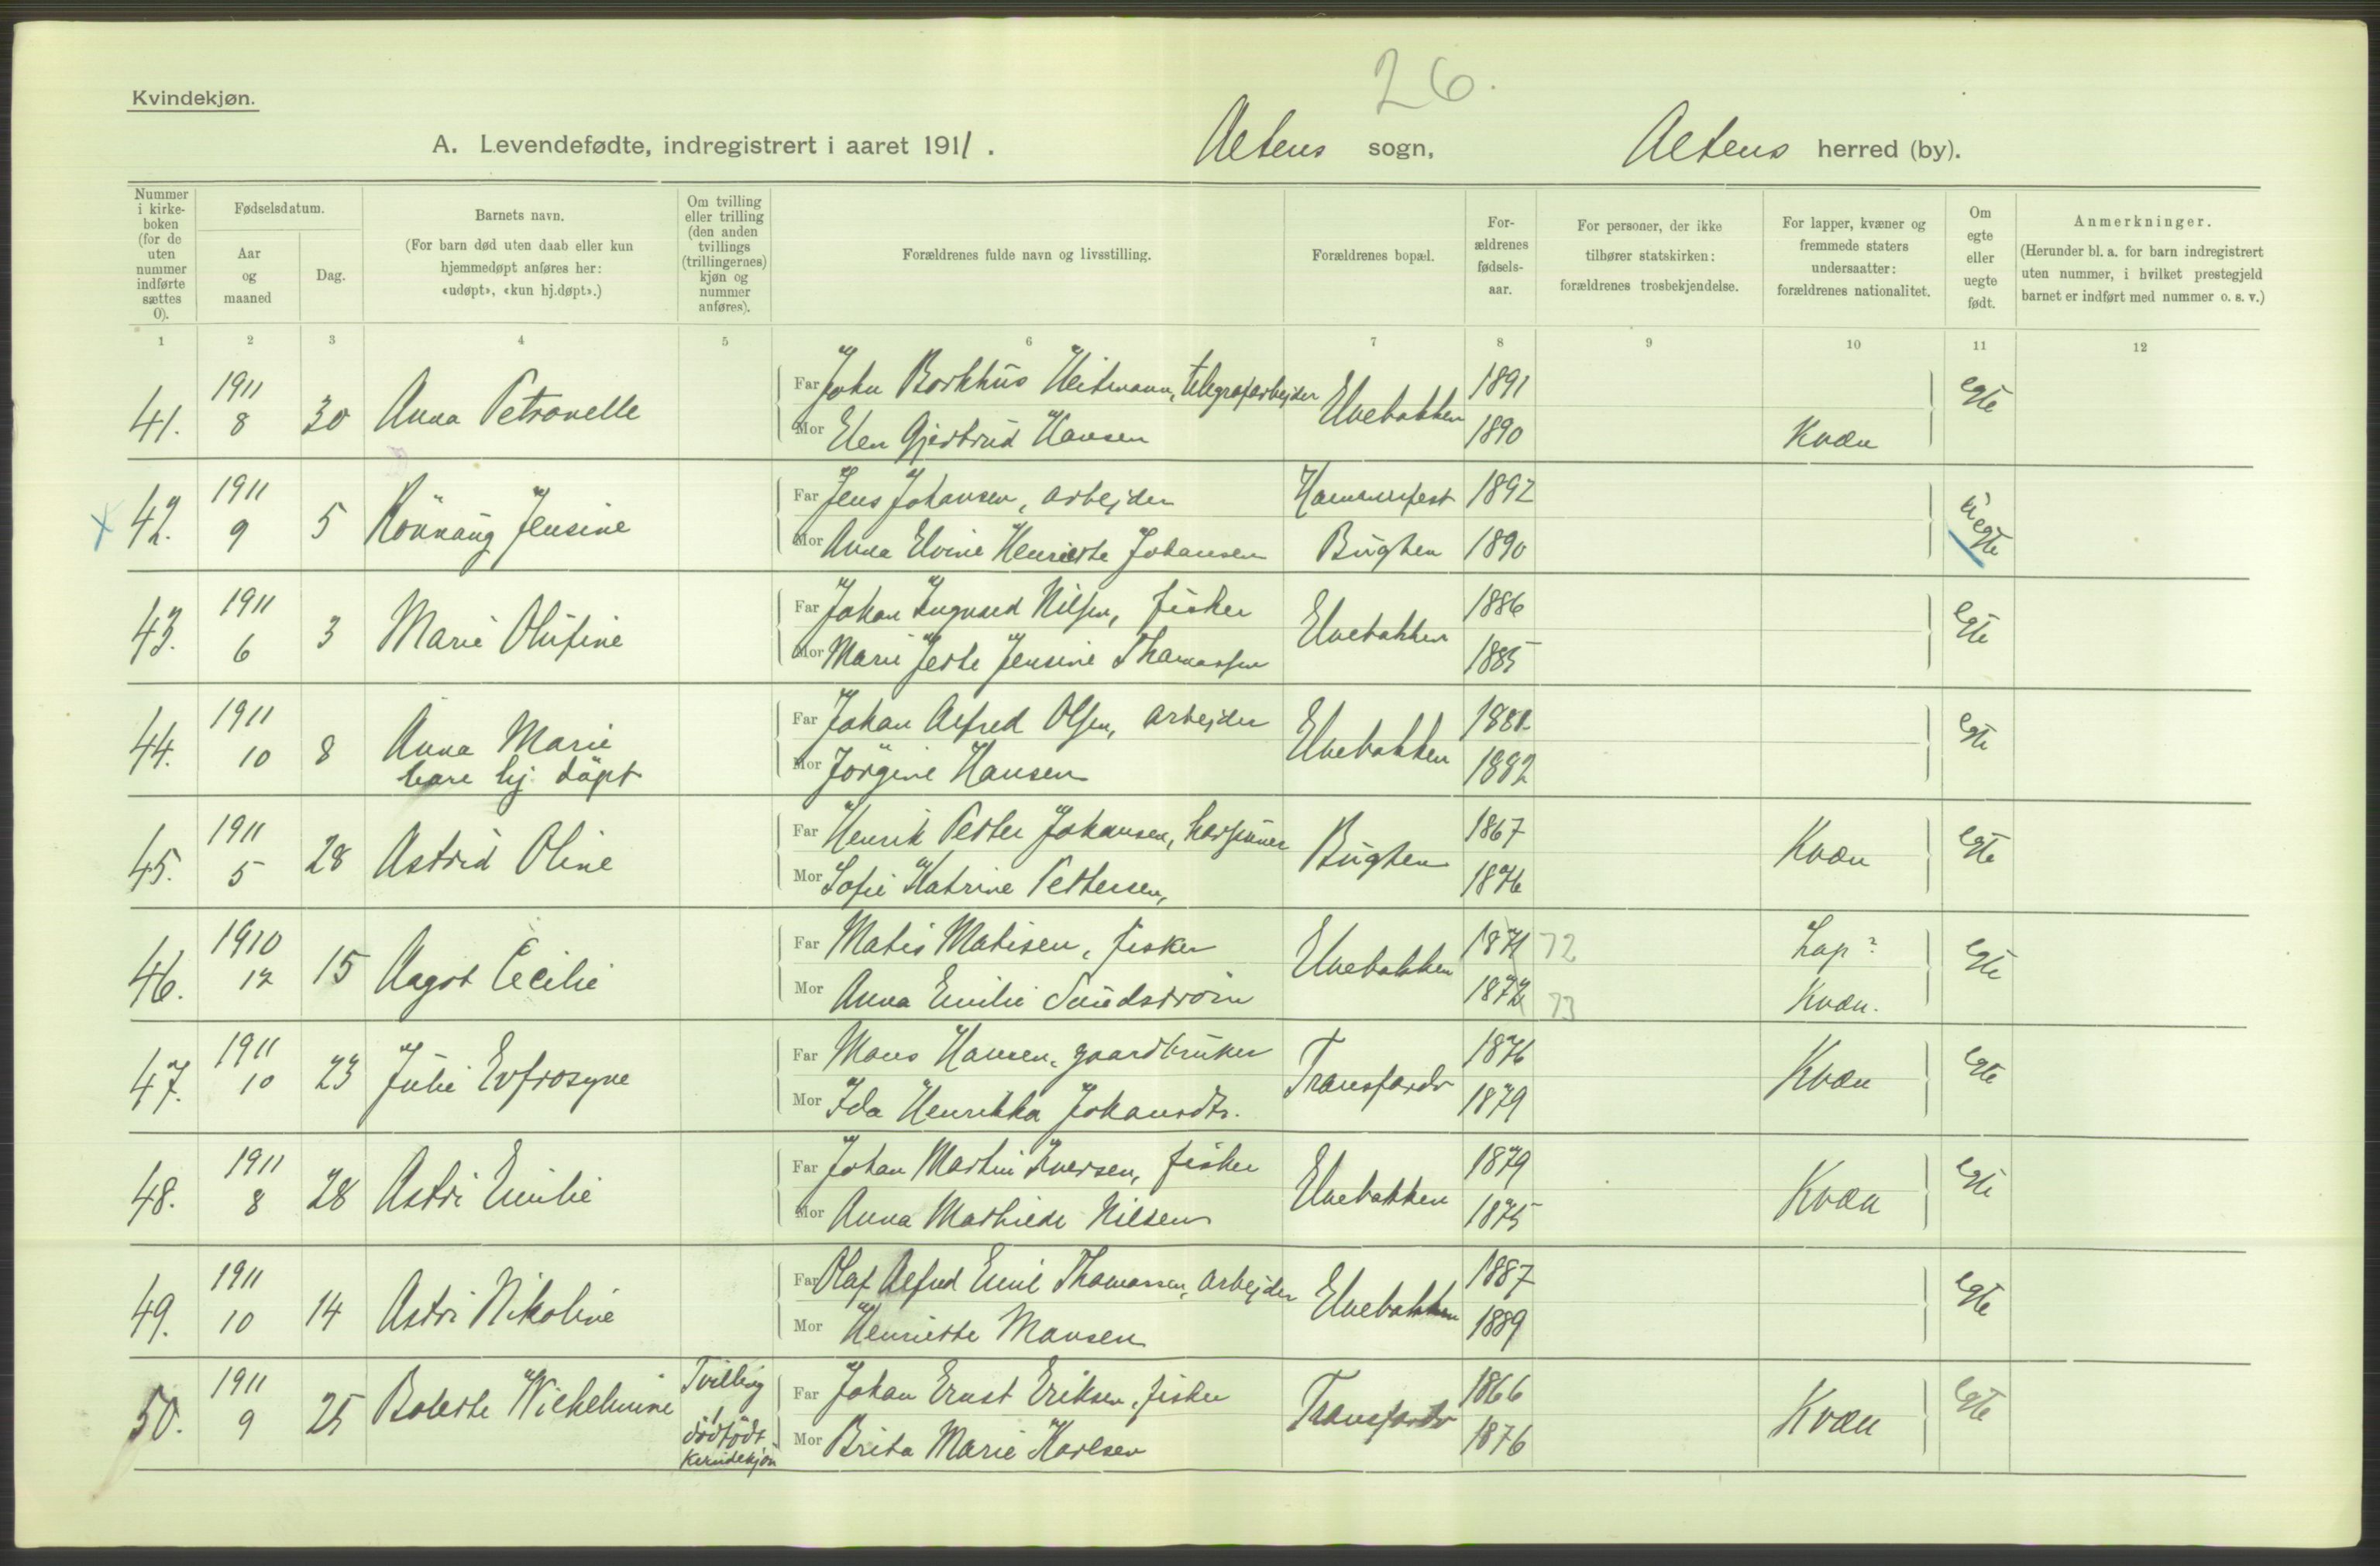 26.
Kvindekjøn.
A. Levendefødte, indregistrert i aaret 1911. Altens sogn, Altens herred (by).
Nummer i kirke-boken (for de uten nummer indførte sættes 0).
Fødselsdatum.
Aar og maaned
Dag.
Barnets navn.
(For barn død uten daab eller kun hjemmedøpt anføres her: «udøpt», «kun hj.døpt».)
Om tvilling eller trilling (den anden tvillings (trillingernes) kjøn og nummer anføres).
Forældrenes fulde navn og livsstilling.
Forældrenes bopæl.
For-ældrenes fødsels-aar.
For personer, der ikke tilhører statskirken: forældrenes trosbekjendelse.
For lapper, kvæner og fremmede staters undersaatter: forældrenes nationalitet.
Om egte eller uegte født.
Anmerkninger.
(Herunder bl. a. for barn indregistrert uten nummer, i hvilket prestegjeld barnet er indført med nummer o. s. v.)
1 2 3 4 5 6 7 8 9 10 11 12
41. 1911 8 30 Anna Petronelle Far John Borkhus Heitmann, telegrafarbejder Elvebakken 1891 egte
Mor Elen Gjertrud Hansen 1890 Kvæn
42. 1911 9 5 Rönnaug Jensine Far Jens Johansen, arbejder Hammerfest 1892 uegte
Mor Anna Elvine Henriette Johansen Bugten 1890
43. 1911 6 3 Marie Olufine Far Johan Ingvard Nilsen, fisker Elvebakken 1886 egte
Mor Marie Jette Jensine Thomassen 1885
44. 1911 10 8 Anna Marie Far Johan Alfred Olsen, arbejder Elvebakken 1881 egte
bare hj. döpt Mor Jörgine Hansen 1882
45. 1911 5 28 Astrid Oline Far Henrik Petter Johansen, harpuner Bugten 1867 Kvæn egte
Mor Sofie Katrine Pettersen, 1876
46. 1910 12 15 Aagot Cecilie Far Matis Matisen, fisker Elvebakken 1871 72 Lap? egte
Mor Anna Emilie Sundström 1872 73 Kvæn.
47. 1911 10 23 Julie Evfrosyne Far Mons Hansen, gaardbruker Transfarelv 1876 Kvæn egte
Mor Ida Henrikka Johansdtr. 1879
48. 1911 8 28 Astri Emilie Far Johan Martin Iversen, fisker Elvebakken 1879 Kvæn egte
Mor Anna Mathilde Nilsen 1875
49. 1911 10 14 Astri Nikoline Far Olaf Alfred Emil Thomassen, arbejder Elvebakken 1887 egte
Mor Henriette Monsen 1889
50. 1911 9 25 Bolette Wilhelmine Tvilling 1 dödfödt kvindekjön Far Johan Ernst Eriksen, fisker Transfarelv 1866 Kvæn egte
Mor Brita Marie Karlsen 1876